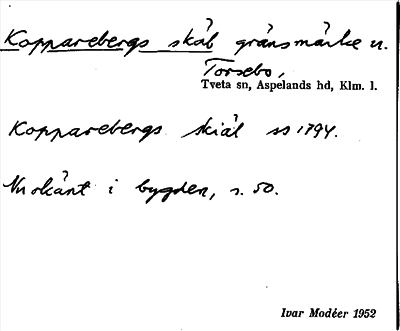 Kopparebergs skäl gränsmärke n.
Torsebo,
Tveta sn, Aspelands hd, Klm. l.
Kopparebergs skiäl ss 1794.
Nu okänt i bygden, s. 50.
Ivar Modéer 1952